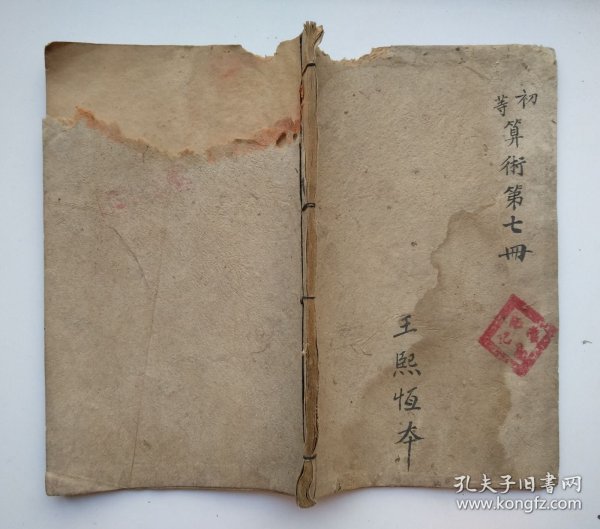 初等算術第七冊
王熙恒本
孔夫子旧书网
www.kongfz.com